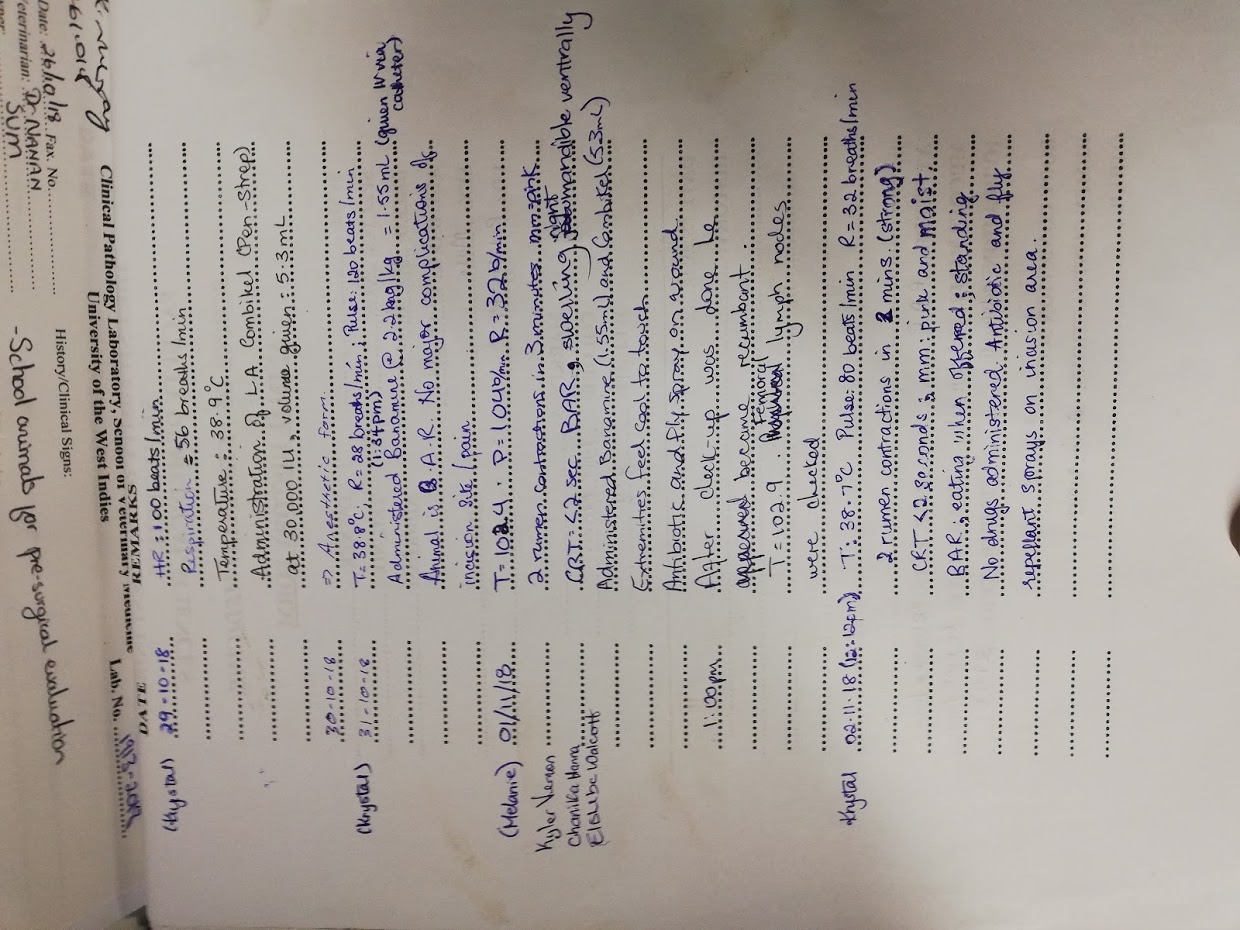 Date: 26/10/18 Fax. No.
eterinarian: Dr NANAN
SVM
History/Clinical Signs:
- School animals for pre-surgical evaluation
Clinical Pathology Laboratory, School of Veterinary Medicine
University of the West Indies
Lab. No.
DATE
(Krystal) 29-10-18 HR: 100 beats/min
Respiration = 56 breaths/min
Temperature: 38.9°C
Administration of L.A. Combiket (Pen-Strep)
at 30,000 IU, volume given: 5.3mL
30-10-18 => Anaesthetic form.
(Krystal) 31-10-18 T= 38.8°C, R= 28 breaths/min; Pulse: 120 beats/min
Administered Banamine @ 2.2mg/kg = 1.55mL (given IV via catheter)
Animal is B.A.R. No major complications of
incision site/pain.
(Melanie) 01/11/18 T= 102.4. P= 104b/min R= 32b/min
Kyler Vernon 2 rumen contractions in 3 minutes mm=pink
Chanika CRT= <2 sec. BAR, swelling right mandible ventrally
Walcott Administered Banamine (1.55mL) and Combiket (5.3mL)
Extremities feel cool to touch
Antibiotic and fly spray on wound
1:00pm After check-up was done he
appeared become recumbant.
T= 102.9. Femoral lymph nodes
were checked
Krystal 02-11-18 (12:12pm) T: 38.7°C Pulse: 80 beats/min R= 32 breaths/min
2 rumen contractions in 2 mins (strong)
CRT <2 seconds; mm: pink and moist
BAR, eating when offered; standing
No drugs administered. Antibiotic and fly
repellant sprays on incision area.